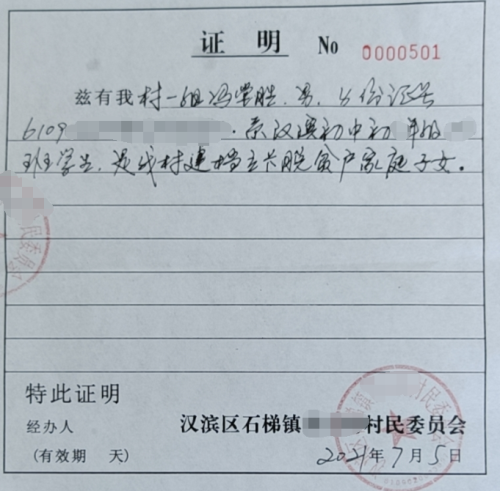 证 明 No 0000501
兹有我村一组冯学胜，男，身份证号
6109 。系汉滨初中初 年级
班学生，是我村建档立卡脱贫户家庭子女。
特此证明
经办人 汉滨区石梯镇 村民委员会
(有效期 天) 2021年7月5日